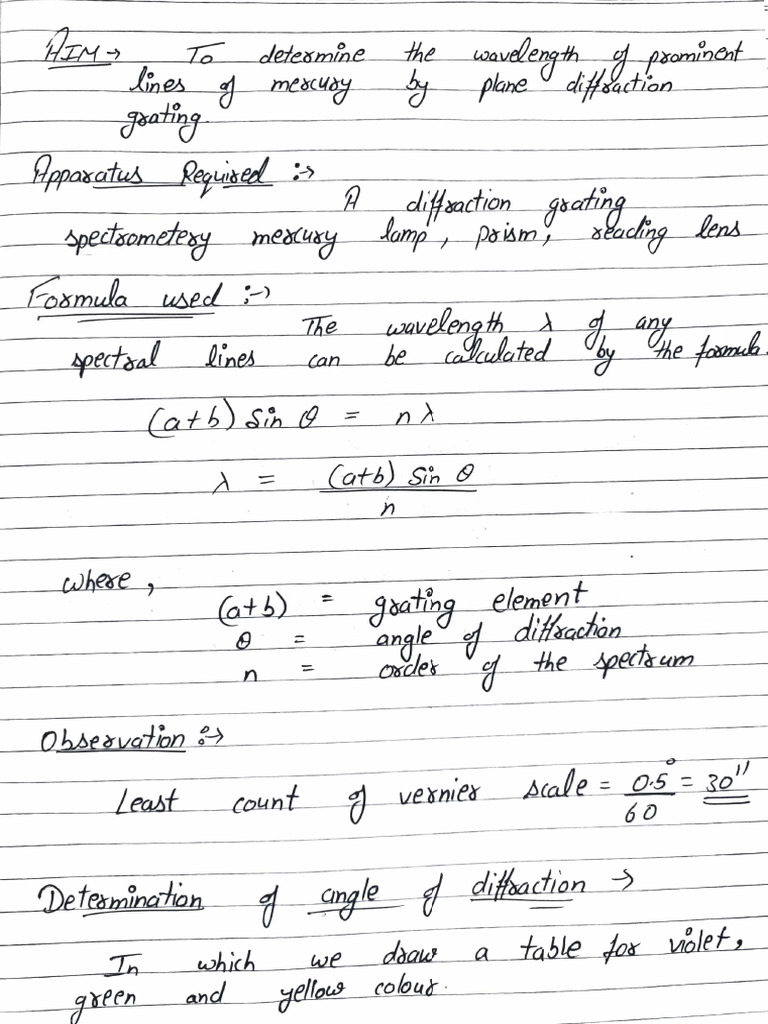 AIM → To determine the wavelength of prominent
lines of mercury by plane diffraction
grating.
Apparatus Required :→
A diffraction grating
spectrometery mercury lamp, prism, reading lens
Formula used :→
The wavelength λ of any
spectral lines can be calculated by the formula.
(a+b) Sin θ = nλ
λ = (a+b) Sin θ / n
where,
(a+b) = grating element
θ = angle of diffraction
n = order of the spectrum
Observation :→
Least count of vernier scale = 0.5° / 60 = 30"
Determination of angle of diffraction →
In which we draw a table for violet,
green and yellow colour.